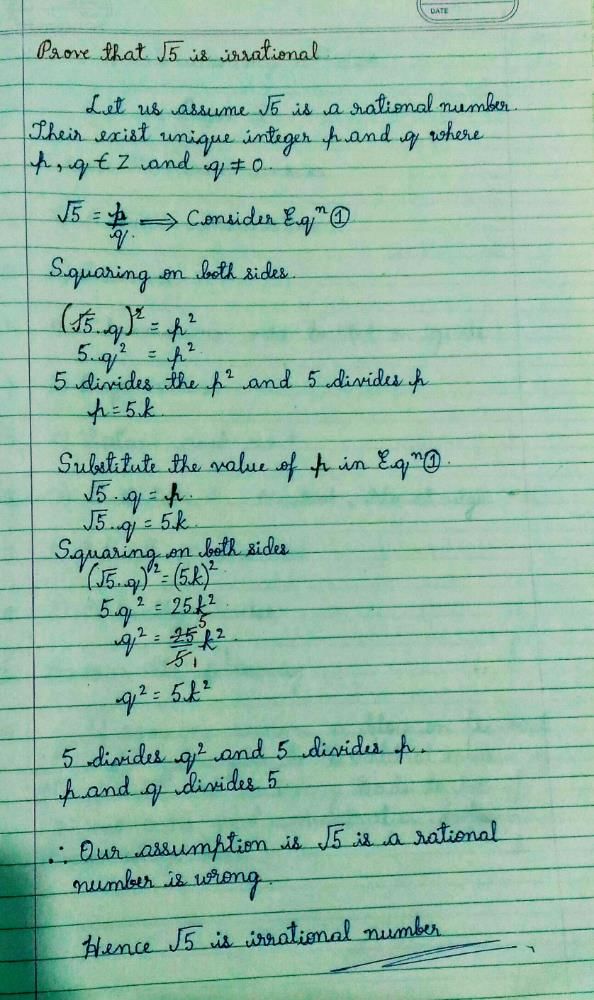 DATE
Prove that √5 is irrational
Let us assume √5 is a rational number.
Their exist unique integer p and q where
p, q ∈ Z and q ≠ 0.
√5 = p/q ⟹ Consider Eqⁿ ①
Squaring on both sides.
(√5.q)² = p²
5.q² = p²
5 divides the p² and 5 divides p
p = 5.k
Substitute the value of p in Eqⁿ ①.
√5.q = p.
√5.q = 5k
Squaring on both sides
(√5.q)² = (5.k)²
5.q² = 25k²
q² = 25/5 k² 5 1
q² = 5k²
5 divides q² and 5 divides p.
p and q divides 5
∴ Our assumption is √5 is a rational
number is wrong.
Hence √5 is irrational number